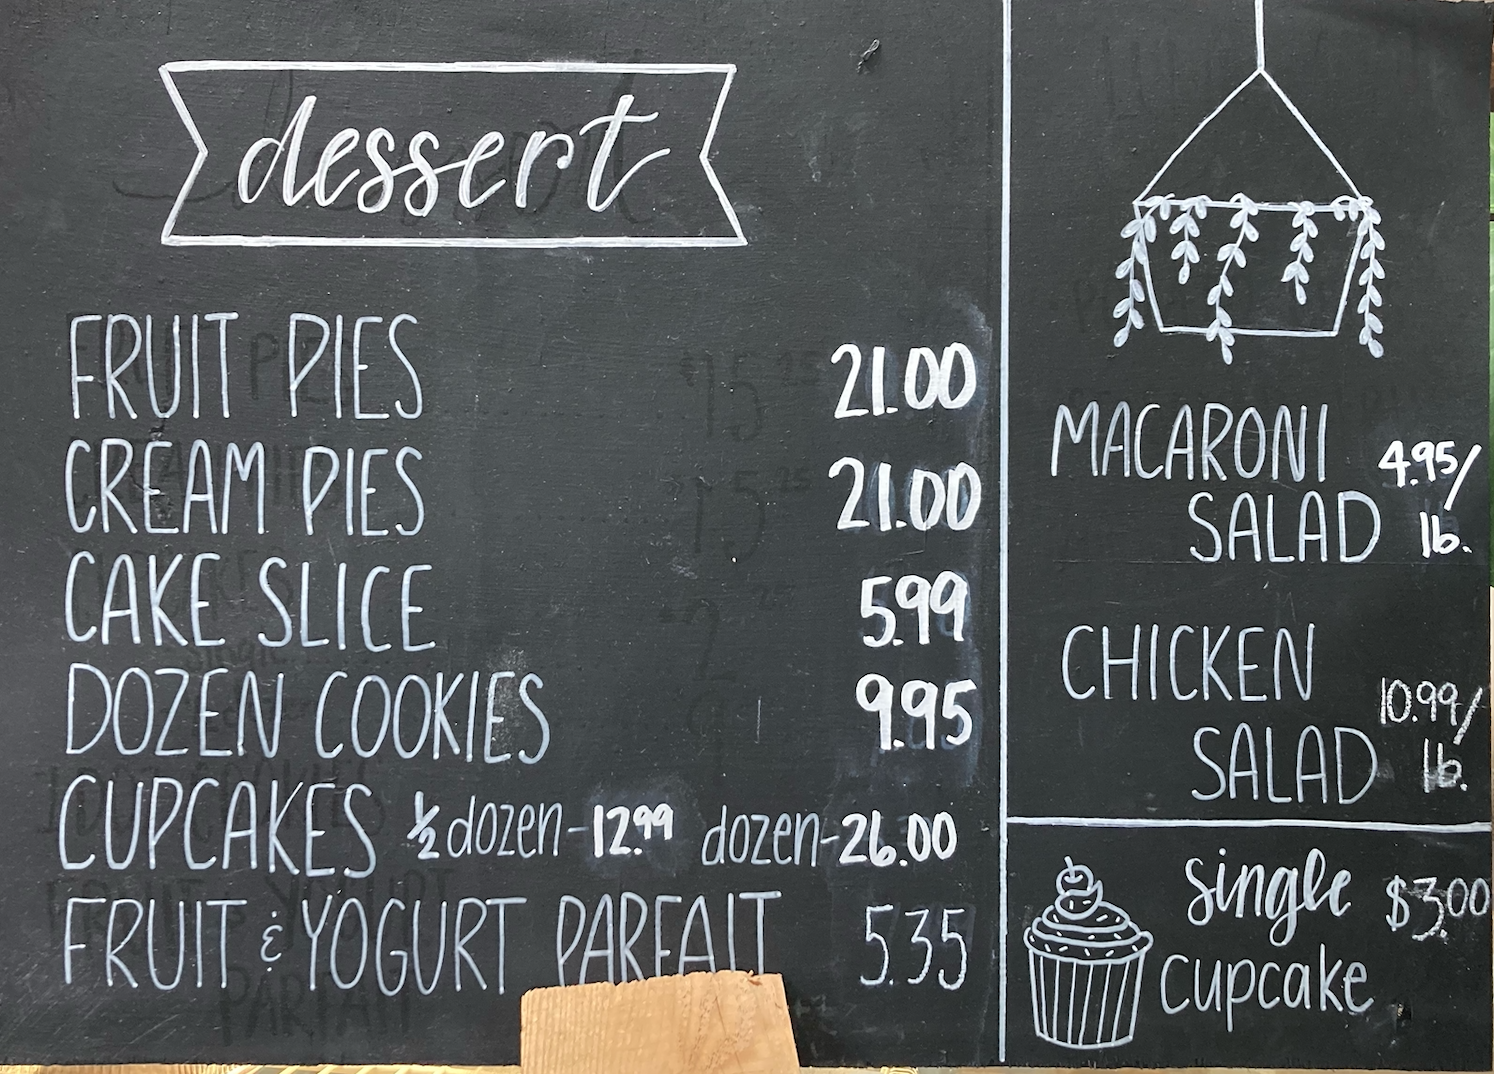 dessert
FRUIT PIES 21.00
CREAM PIES 21.00
CAKE SLICE 5.99
DOZEN COOKIES 9.95
CUPCAKES ½ dozen-12.99 dozen-26.00
FRUIT & YOGURT PARFAIT 5.35
MACARONI 4.95/
SALAD lb.
CHICKEN 10.99/
SALAD lb.
single $3.00
cupcake